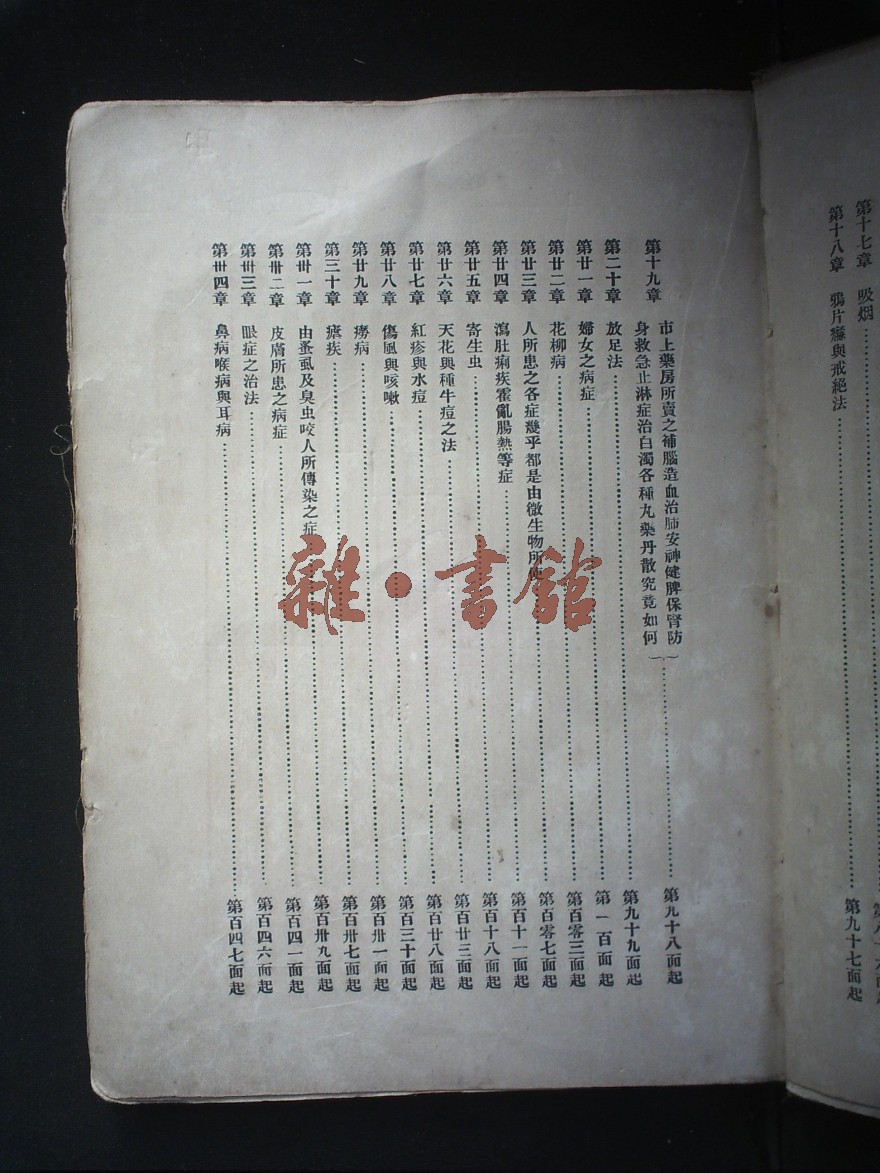 第十七章 吸烟
第十八章 鴉片癮與戒絕法……第九十七面起
第十九章 市上藥房所賣之補腦造血治肺安神健脾保腎防
身救急止淋症治白濁各種丸藥丹散究竟如何……第九十八面起
第二十章 放足法……第九十九面起
第廿一章 婦女之病症……第一百面起
第廿二章 花柳病……第百零三面起
第廿三章 人所患之各症幾乎都是由微生物所……第百零七面起
第廿四章 瀉肚痢疾霍亂腸熱等症……第百十一面起
第廿五章 寄生虫……第百十八面起
第廿六章 天花與種牛痘之法……第百廿三面起
第廿七章 紅疹與水痘……第百廿八面起
第廿八章 傷風與咳嗽……第百三十面起
第廿九章 癆病……第百卅一面起
第三十章 瘧疾……第百卅七面起
第卅一章 由蚤虱及臭虫咬人所傳染之症……第百卅九面起
第卅二章 皮膚所患之病症……第百四一面起
第卅三章 眼症之治法……第百四六面起
第卅四章 鼻病喉病與耳病……第百四七面起
雜·書館